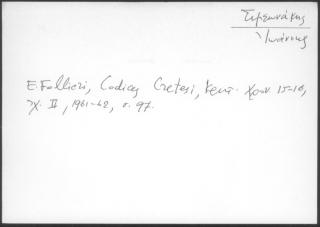 Συμεωνάκης
Ἰωάννης
E. Follieri, Codices Cretesi, Κρητ. Χρον. 15-16,
τχ. II, 1961-62, σ. 97.